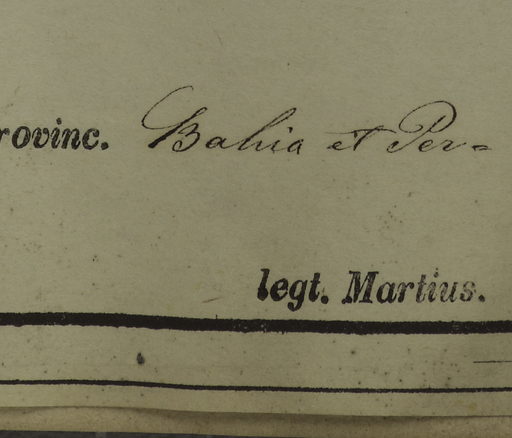 rovinc. Bahia et Per-
legt. Martius.